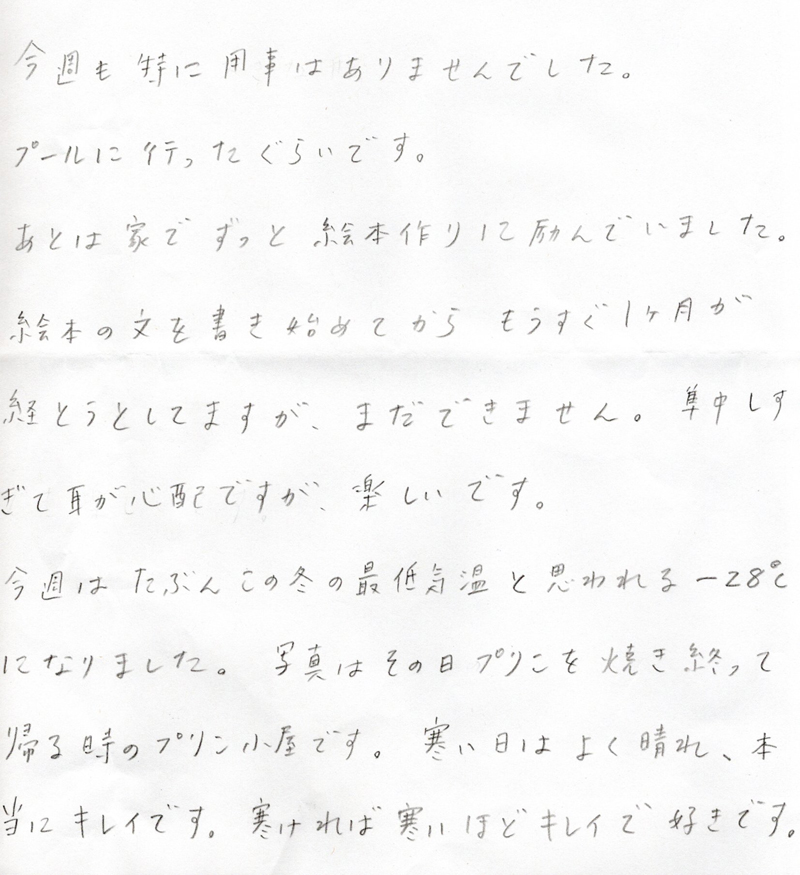 今週も特に用事はありませんでした。
プールに行ったぐらいです。
あとは家でずっと絵本作りに励んでいました。
絵本の文を書き始めてからもうすぐ1ヶ月が
経とうとしてますが、まだできません。集中しす
ぎて耳が心配ですが、楽しいです。
今週はたぶんこの冬の最低気温と思われる−28℃
になりました。写真はその日プリンを焼き終って
帰る時のプリン小屋です。寒い日はよく晴れ、本
当にキレイです。寒ければ寒いほどキレイで好きです。